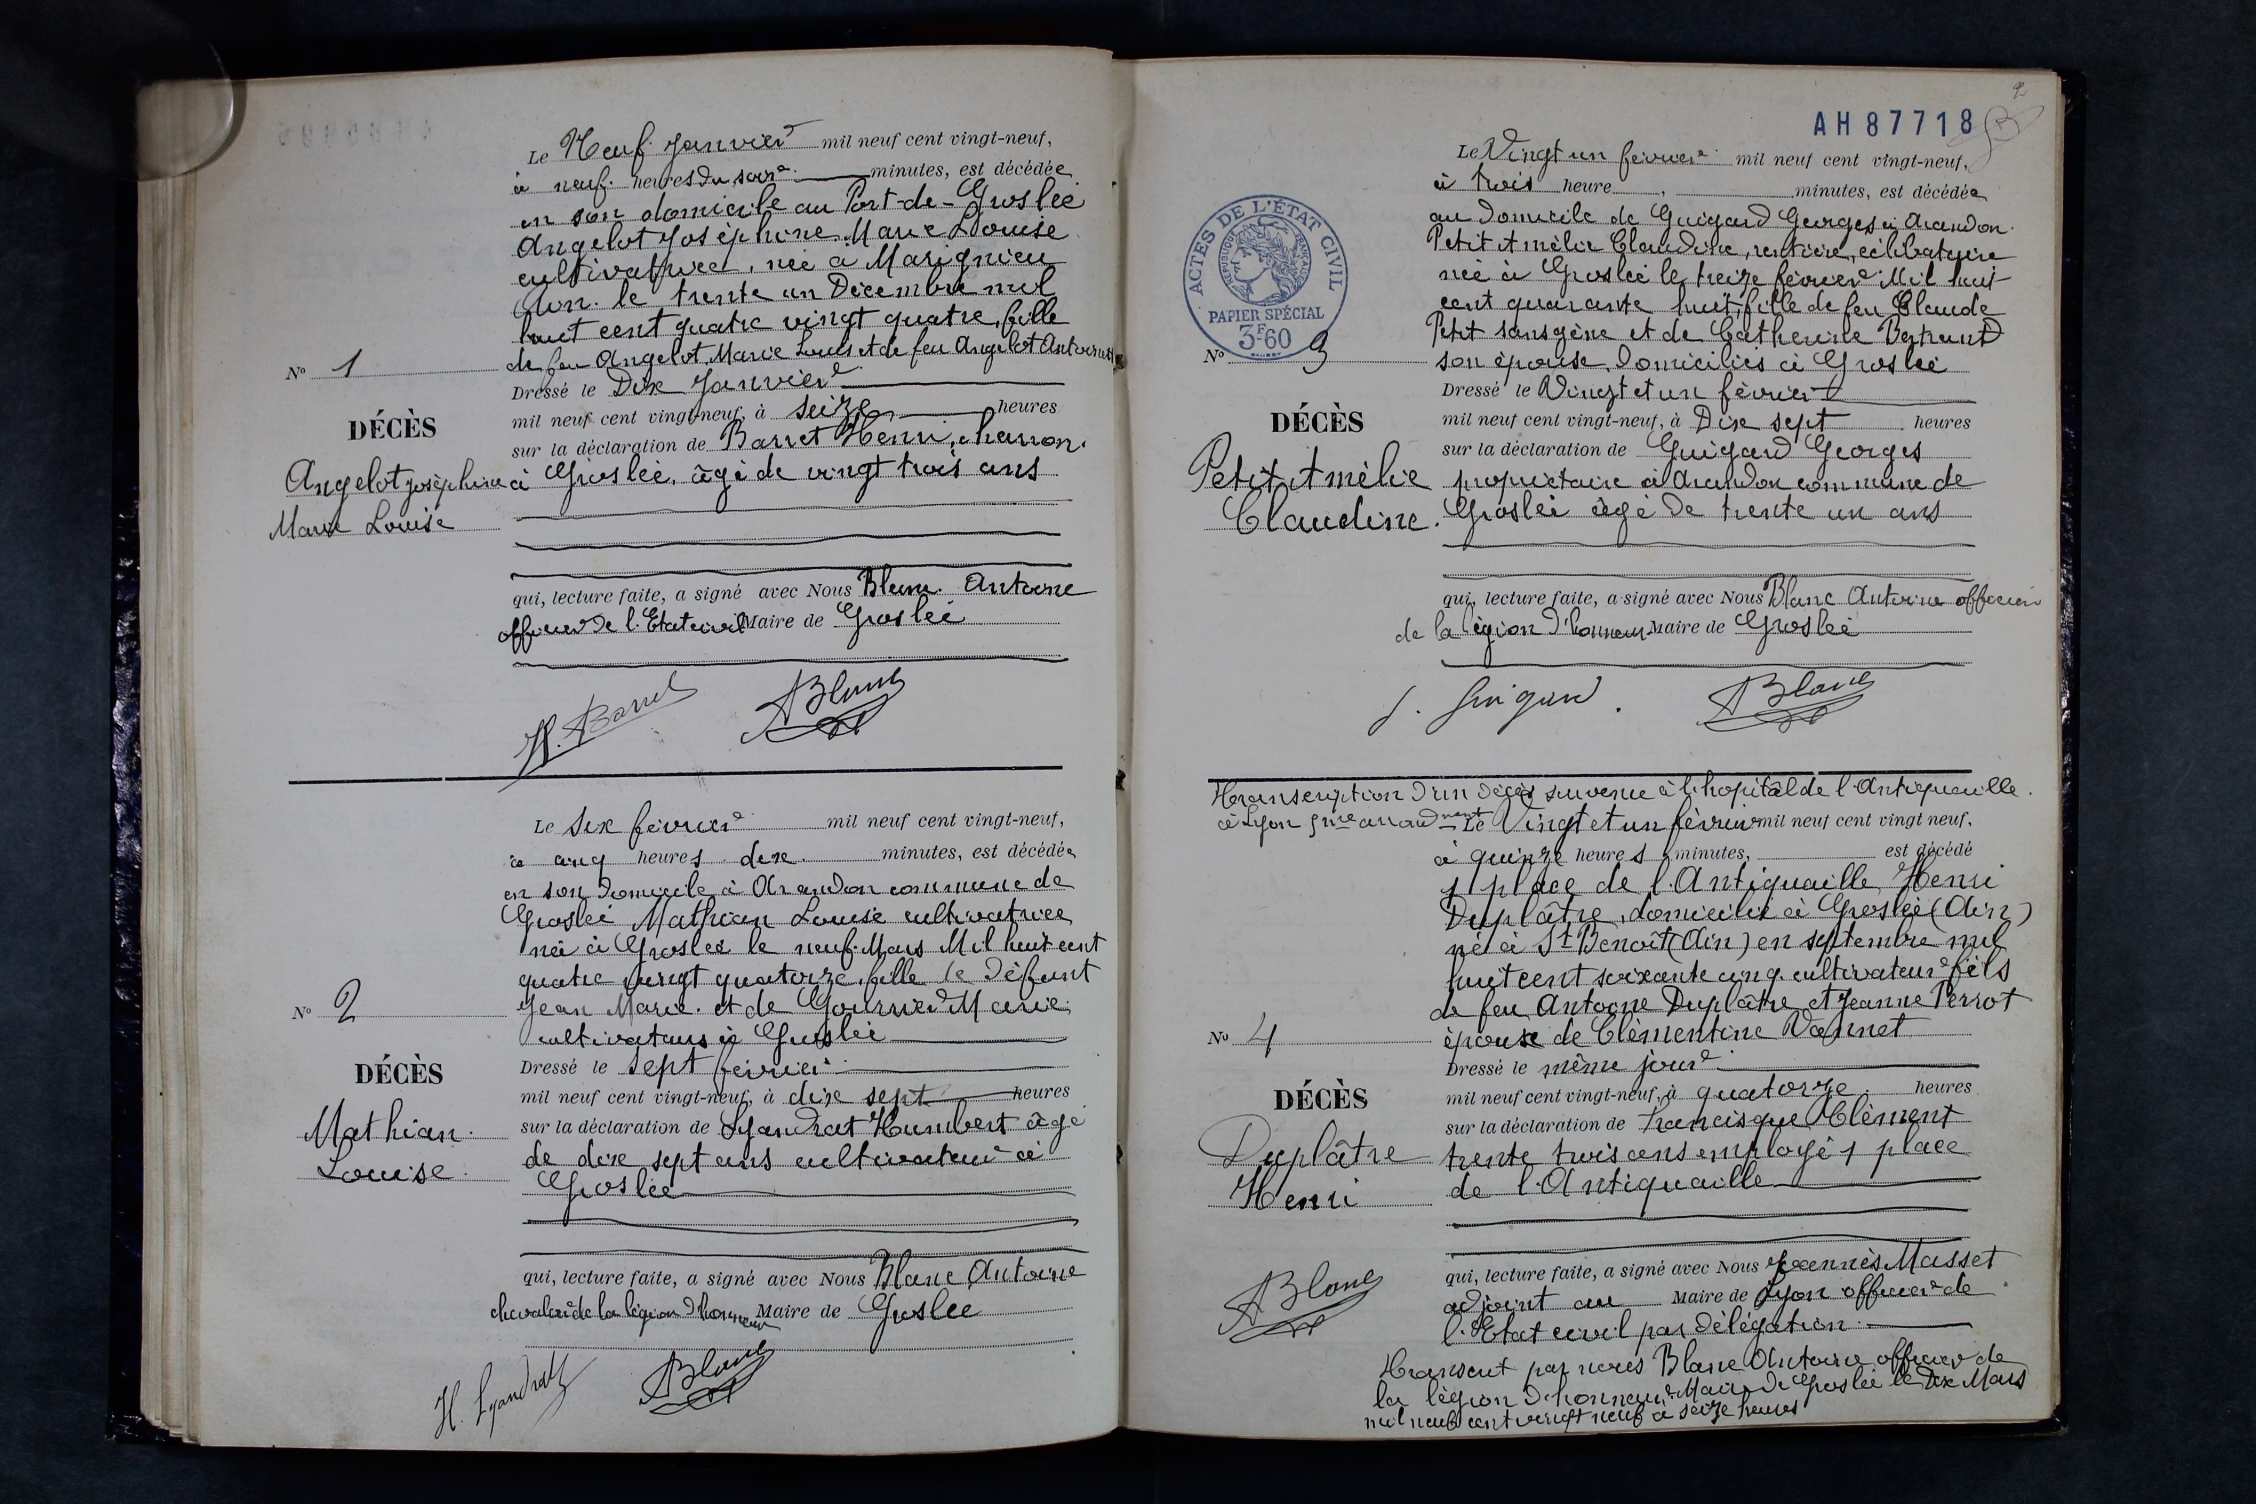 Le Neuf Janvier mil neuf cent vingt-neuf,
à neuf heures du soir minutes, est décédée
en son domicile au Port-de-Groslée
Angelot Joséphine Marie Louise
cultivatrice, née à Marignieu
Ain. le trente un Décembre mil
huit cent quatre vingt quatre, fille
de feu Angelot Marie Louis et de feu Angelot Antoinette
Nº 1
Dressé le Dix Janvier
mil neuf cent vingt-neuf, à seize heures
DÉCÈS
sur la déclaration de Barret Henri, charron
Angelot Joséphine
Marie Louise
à Groslée, âgé de vingt trois ans
qui, lecture faite, a signé avec Nous Blanc Antoine
officier de l'Etat civil Maire de Groslée
H. Barret ABlanc
Le Six février mil neuf cent vingt-neuf,
à cinq heures dix minutes, est décédée
en son domicile à Arandon commune de
Groslée Mathian Louise cultivatrice
née à Groslée le neuf Mars Mil huit cent
quatre vingt quatorze, fille de défunt
Jean Marie et de Gournier Marie
cultivateurs à Groslée
Nº 2
Dressé le sept février
mil neuf cent vingt-neuf, à dix sept heures
DÉCÈS
Mathian
Louise
sur la déclaration de Lyandrat Humbert âgé
de dix sept ans cultivateur à
Groslée
qui, lecture faite, a signé avec Nous Blanc Antoine
chevalier de la légion d'honneur Maire de Groslée
H. Lyandrat ABlanc
2
AH 87718
Le Vingt un février mil neuf cent vingt-neuf,
à trois heure, minutes, est décédée
au domicile de Guigard Georges à Arandon
Petit Amélie Claudine, rentière, célibataire
née à Groslée le treize février Mil huit
cent quarante huit, fille de feu Claude
Petit sansgène et de Catherine Bertrand
son épouse, domiciliés à Groslée
ACTES DE L'ÉTAT CIVIL
RÉPUBLIQUE FRANÇAISE
PAPIER SPÉCIAL
3F60
Nº 3
Dressé le Vingt et un février
mil neuf cent vingt-neuf, à Dix sept heures
DÉCÈS
Petit Amélie
Claudine.
sur la déclaration de Guigard Georges
propriétaire à Arandon commune de
Groslée âgé de trente un ans
qui, lecture faite, a signé avec Nous Blanc Antoine officier
de la légion d'honneur Maire de Groslée
G. Guigard. ABlanc
Transcription d'un décès survenue à l'hopitâl de l'Antiquaille
à Lyon 5me arrondnent Le Vingt et un février mil neuf cent vingt neuf,
à quinze heures minutes, est décédé
1 place de l'Antiquaille, Henri
Duplâtre, domicilié à Groslée (Ain)
né à St Benoît (Ain) en septembre mil
huit cent soixante cinq. cultivateur fils
de feu Antoine Duplâtre et Jeanne Perrot
époux de Clémentine Vannet
Nº 4
Dressé le même jour
mil neuf cent vingt-neuf, à quatorze heures
DÉCÈS
Duplâtre
Henri
sur la déclaration de Francisque Clément
trente trois ans employé 1 place
de l'Antiquaille
qui, lecture faite, a signé avec Nous Joannès Masset
adjoint au Maire de Lyon officier de
l'Etat civil par délégation
ABlanc
Transcrit par nous Blanc Antoine officier de
la légion d'honneur Maire de Groslée le Dix Mars
mil neuf cent vingt neuf à seize heures